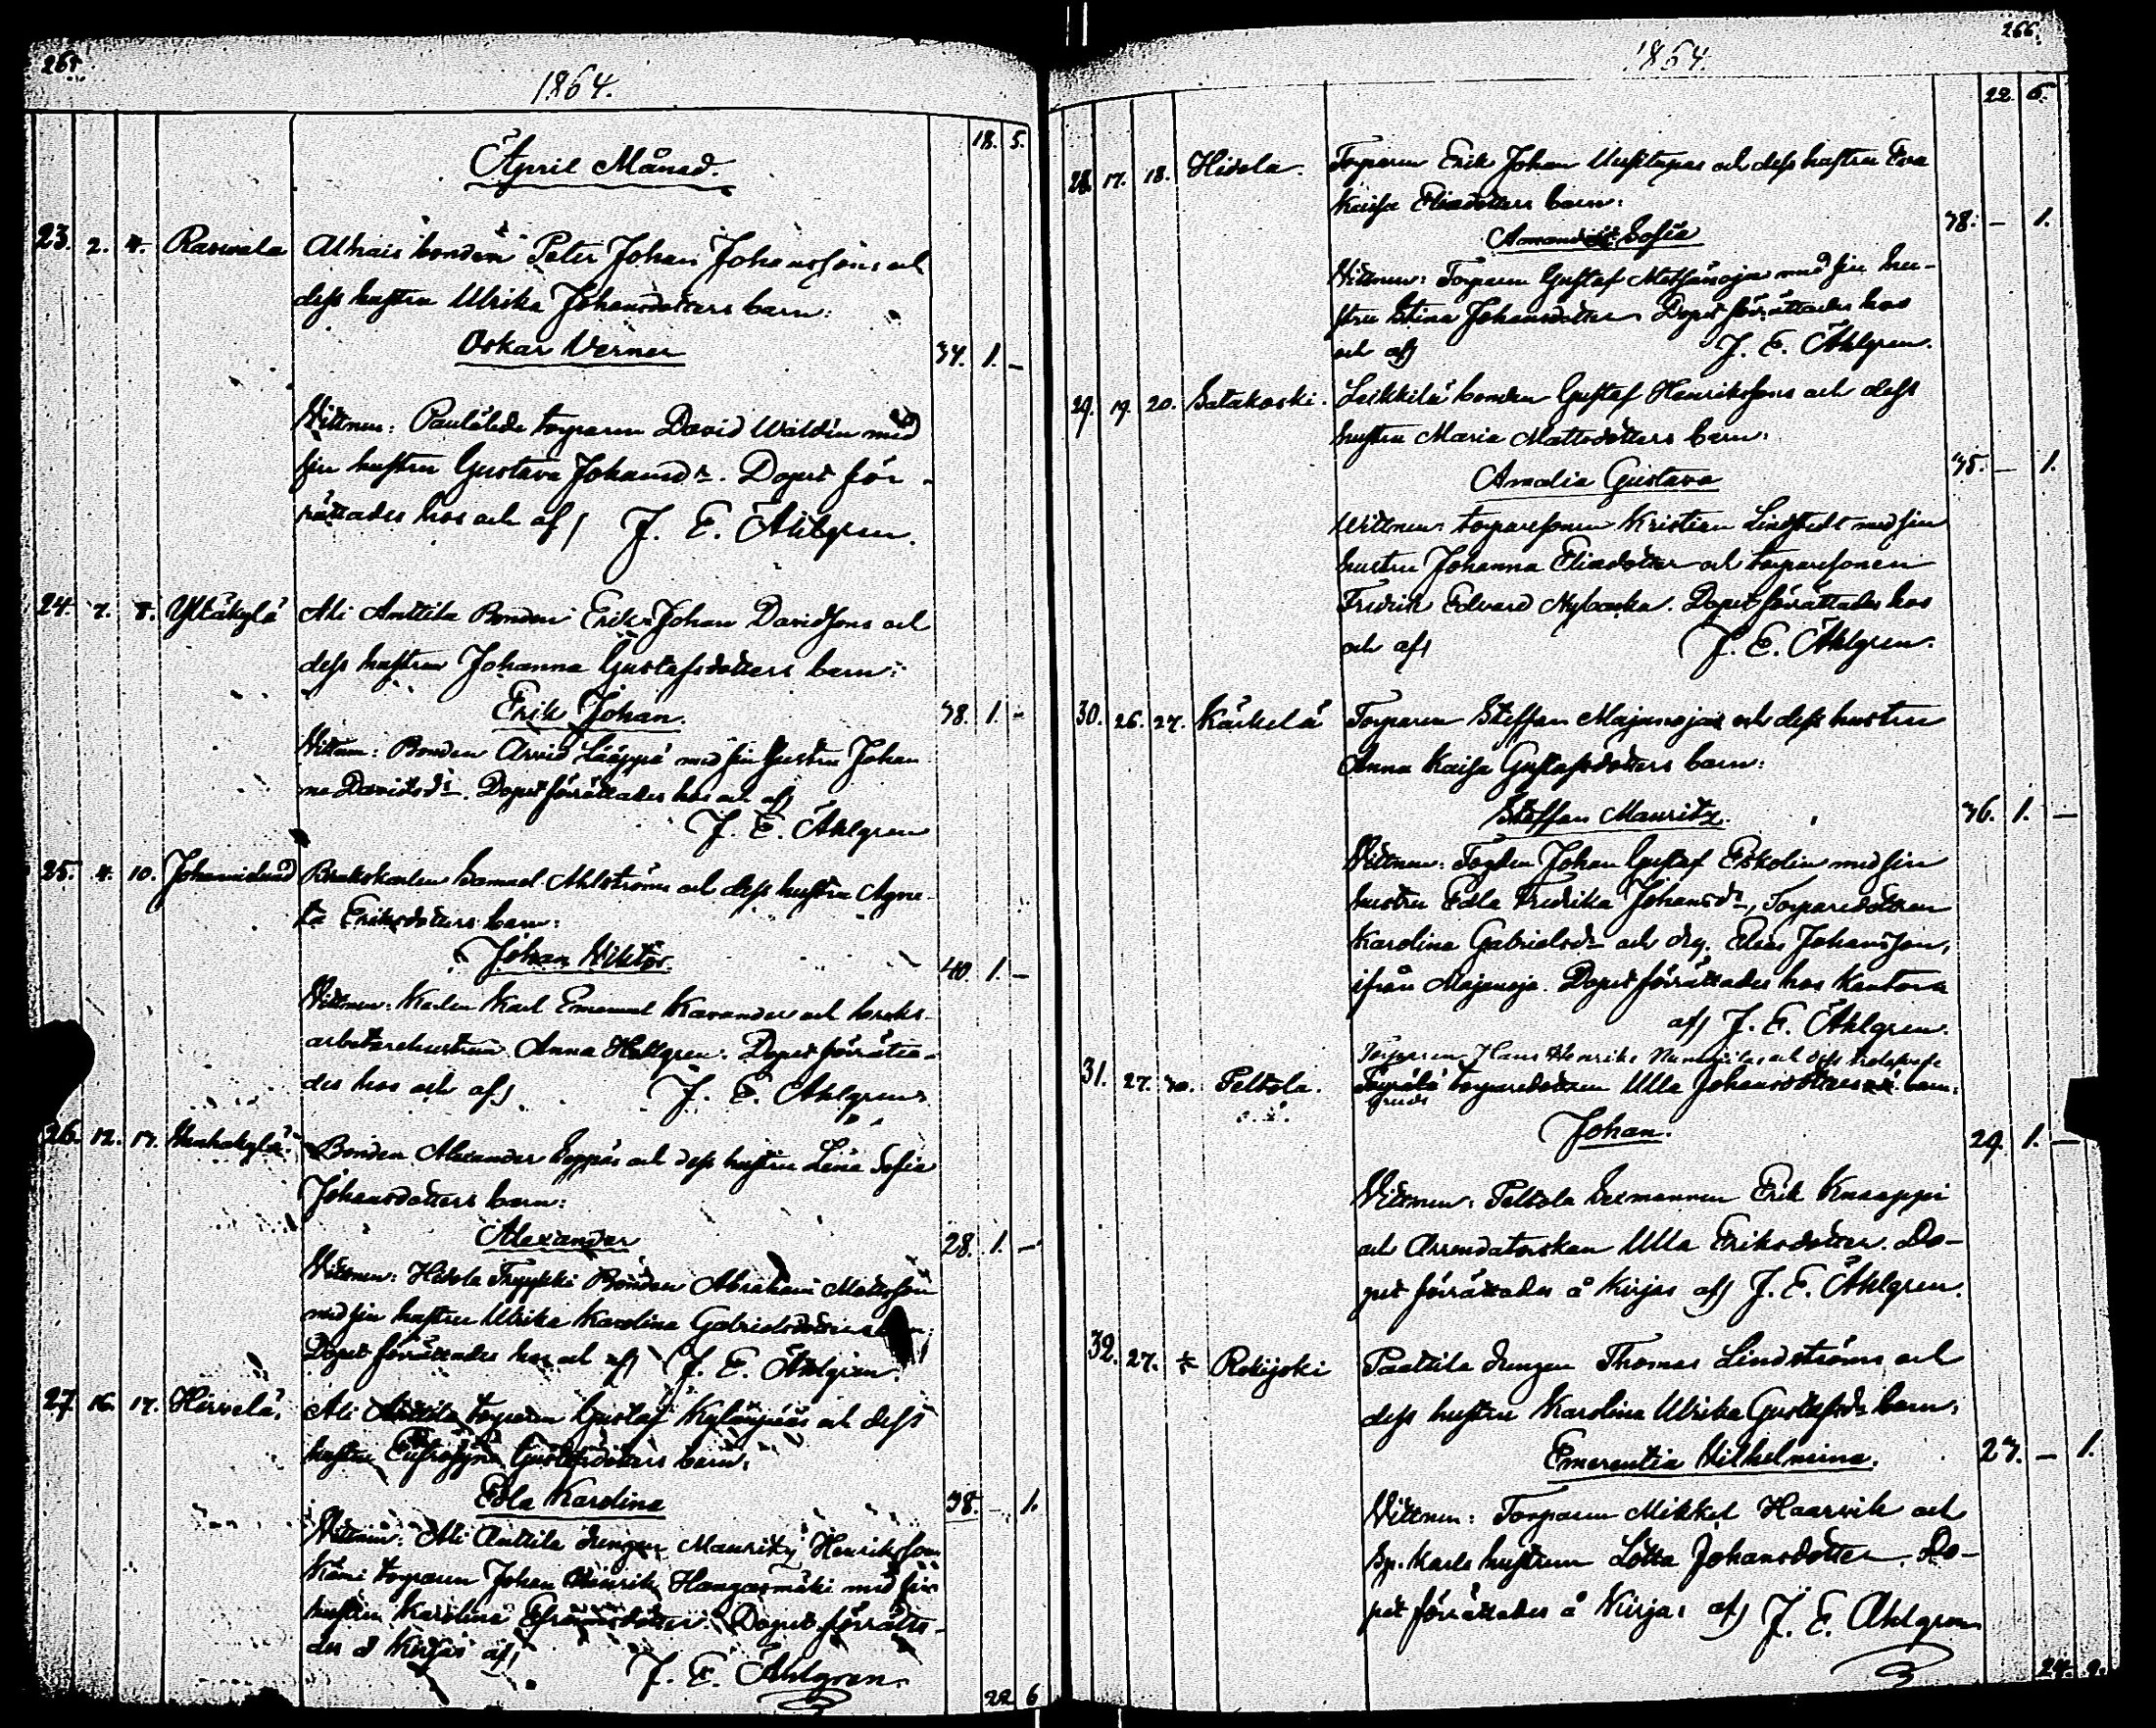 265.
1864.
18. 5.
April Månad.
23. 2. 4. Raswala Alhais bonden Peter Johan Johanssons och
dess hustru Ulrika Johansdotters barn:
Oskar Verner 34. 1. –
Vittnen: Paulälede torparen David Waldin med
sin hustru Gustava Johansdr. Dopet för-
rättades hos och af J. E. Åhlgren.
24. 7. 8. Yltäkylä Ali Anttila Bonden Erik Johan Davidsons och
dess hustru Johanna Gustafsdotters barn:
Erik Johan. 38. 1. –
Vittnen: Bonden Arvid Lääppä med sin hustru Johan
na Davidsdr. Dopet förrättades hos och af
J. E. Åhlgren
25. 4. 10. Johannislund Brukskarlen Samuel Ahlströms och dess hustru Agne-
ta Eriksdotters barn:
Johan Viktor. 40. 1. –
Vittnen: Karlen Karl Emanuel Kavander och bruks-
arbetarehustrun Anna Hellgren. Dopet förrätta-
des hos och af J. E. Åhlgren
26. 12. 17. Vanhakylä. Bonden Alexander Seppäs och dess hustru Lena Sofia
Johansdotters barn:
Alexander 28. 1. –
Vittnen: Hidola Tryykki Bonden Abraham Matsson
med sin hustru Ulrika Karolina Gabrielsdotter
Dopet förrättades hos och af J. E. Åhlgren.
27. 16. 17. Hirvelä. Ali Anttila torparen Gustaf Kylänpääs och dess
hustru Eufrosyne Gustafsdotters barn.
Edla Karolina 38. – 1.
Vittnen: Ali Anttila drengen Mauritz Henriksson
Kämi torparen Johan Henrik Hangasmäki med sin
hustru Karolina Efraimsdotter. Dopet förrätta-
des å Kirjas af J. E. Åhlgren.
22 6
266.
1864.
22. 6.
28. 17. 18. Hidola. Torparen Erik Johan Uusitupas och dess hustru Eva
Kaisa Eliadotters barn:
Amanda Sofia 38. – 1.
Vittnen: Torparen Gustaf Metsänoja med sin hu-
stru Stina Johansdotter. Dopet förrättades hos
och af J. E. Åhlgren.
29. 19. 20. Satakoski. Leikkilä bonden Gustaf Henrikssons och dess
hustru Maria Mattsdotters barn:
Amalia Gustava 35. – 1.
Wittnen: torparesonen Kristian Lindstedt med sin
hustru Johanna Eliadotter och torparesonen
Fredrik Edvard Nybacka. Dopet förrättades hos
och af J. E. Åhlgren.
30. 26. 27. Kärkelä Torparen Steffan Majanojas och dess hustru
Anna Kaisa Gustafsdotters barn:
Steffan Mauritz. 36. 1. –
Vittnen: Fogden Johan Gustaf Eskolin med sin
hustru Edla Fredrika Johansdr, Torparedottren
Karolina Gabrielsdr och drg. Elias Johansson,
ifrån Majanoja. Dopet förrättades hos Kantorn
af J. E. Åhlgren.
31. 27. 30. Peltola. Torparen Hans Henriks och dess trolofvade
torparedottren Ulla Johansdotters barn:
Johan. 29. 1. –
Vittnen: Peltola sexmannen Erik Knaappi
och Arrendatorskan Ulla Eriksdotter. Do-
pet förrättades å Kirjas af J. E. Åhlgren.
32. 27. Rekijoki Paattila drengen Thomas Lindströms och
dess hustru Karolina Ulrika Gustafsdr barn:
Emerentia Vilhelmina. 23. – 1.
Vittnen: Torparen Mikkel Haarvik och
Sp. Karls hustrun Lotta Johansdotter. Do-
pet förrättades å Kirjas af J. E. Åhlgren